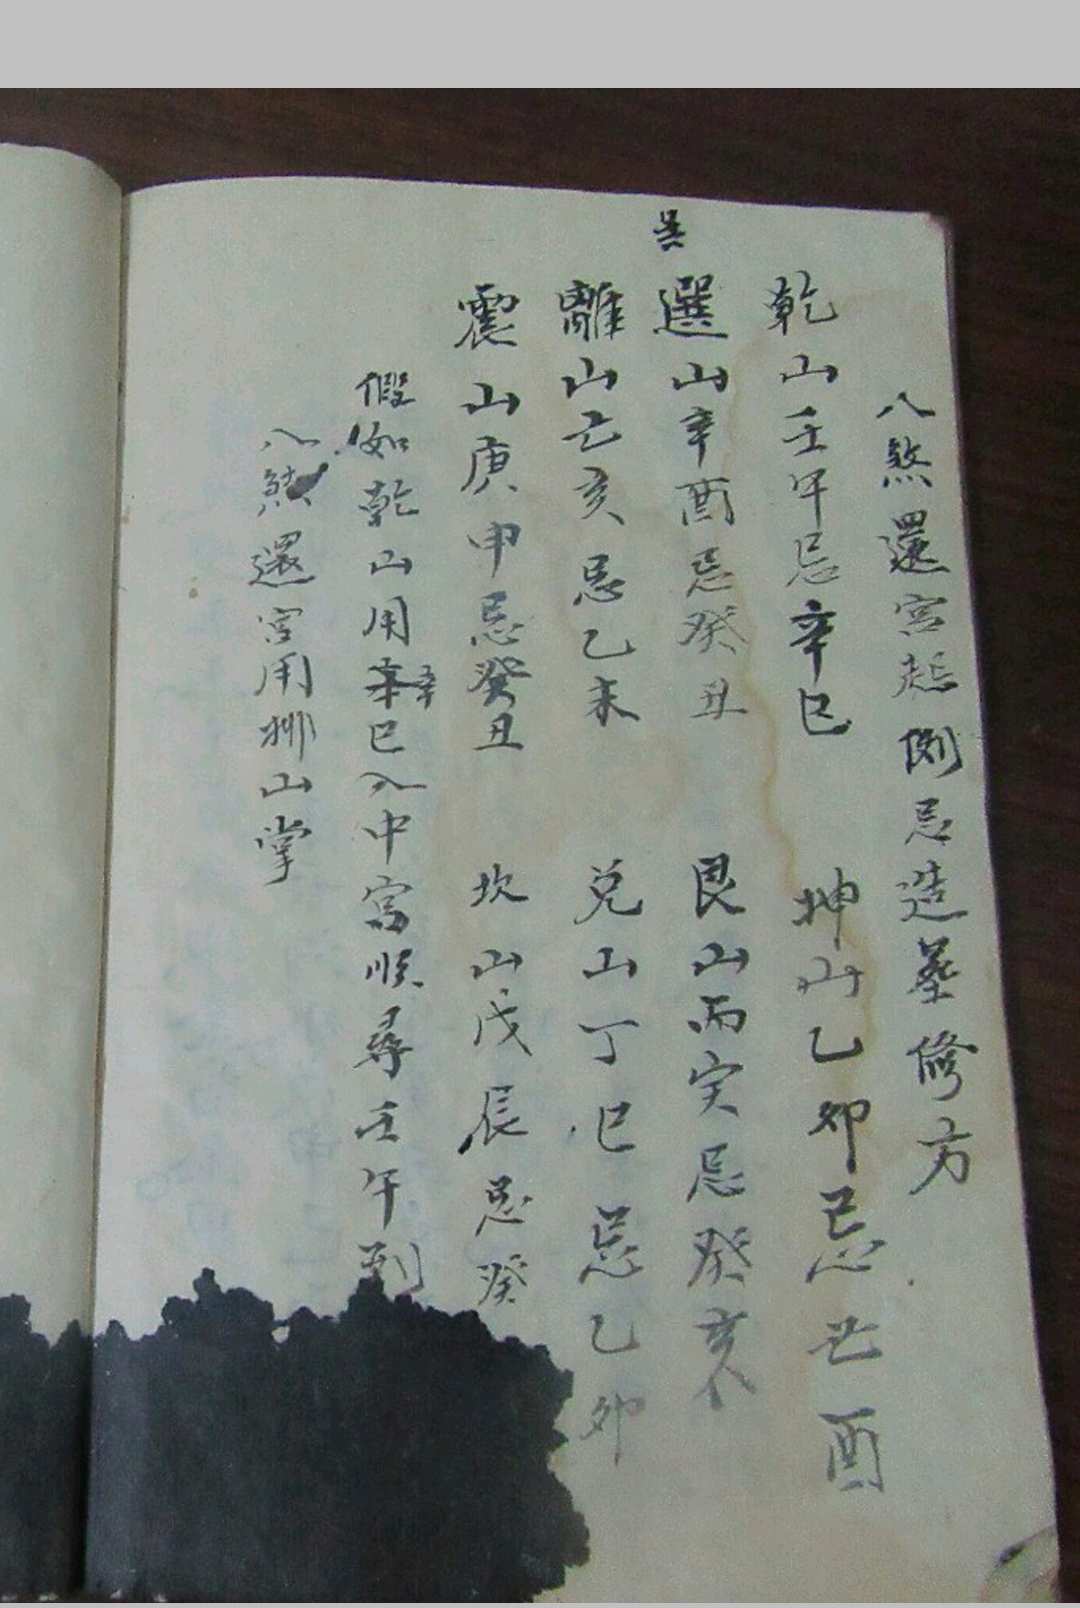 八煞還宮起例忌造葬修方
乾山壬午忌辛巳 坤山乙卯忌亡酉
巽
選山辛酉忌癸丑 艮山丙寅忌癸亥
離山己亥忌乙未 兑山丁巳忌乙卯
震山庚申忌癸丑 坎山戊辰忌癸
假如乾山用辛巳入中宮順尋壬午到
八煞還宮用排山掌